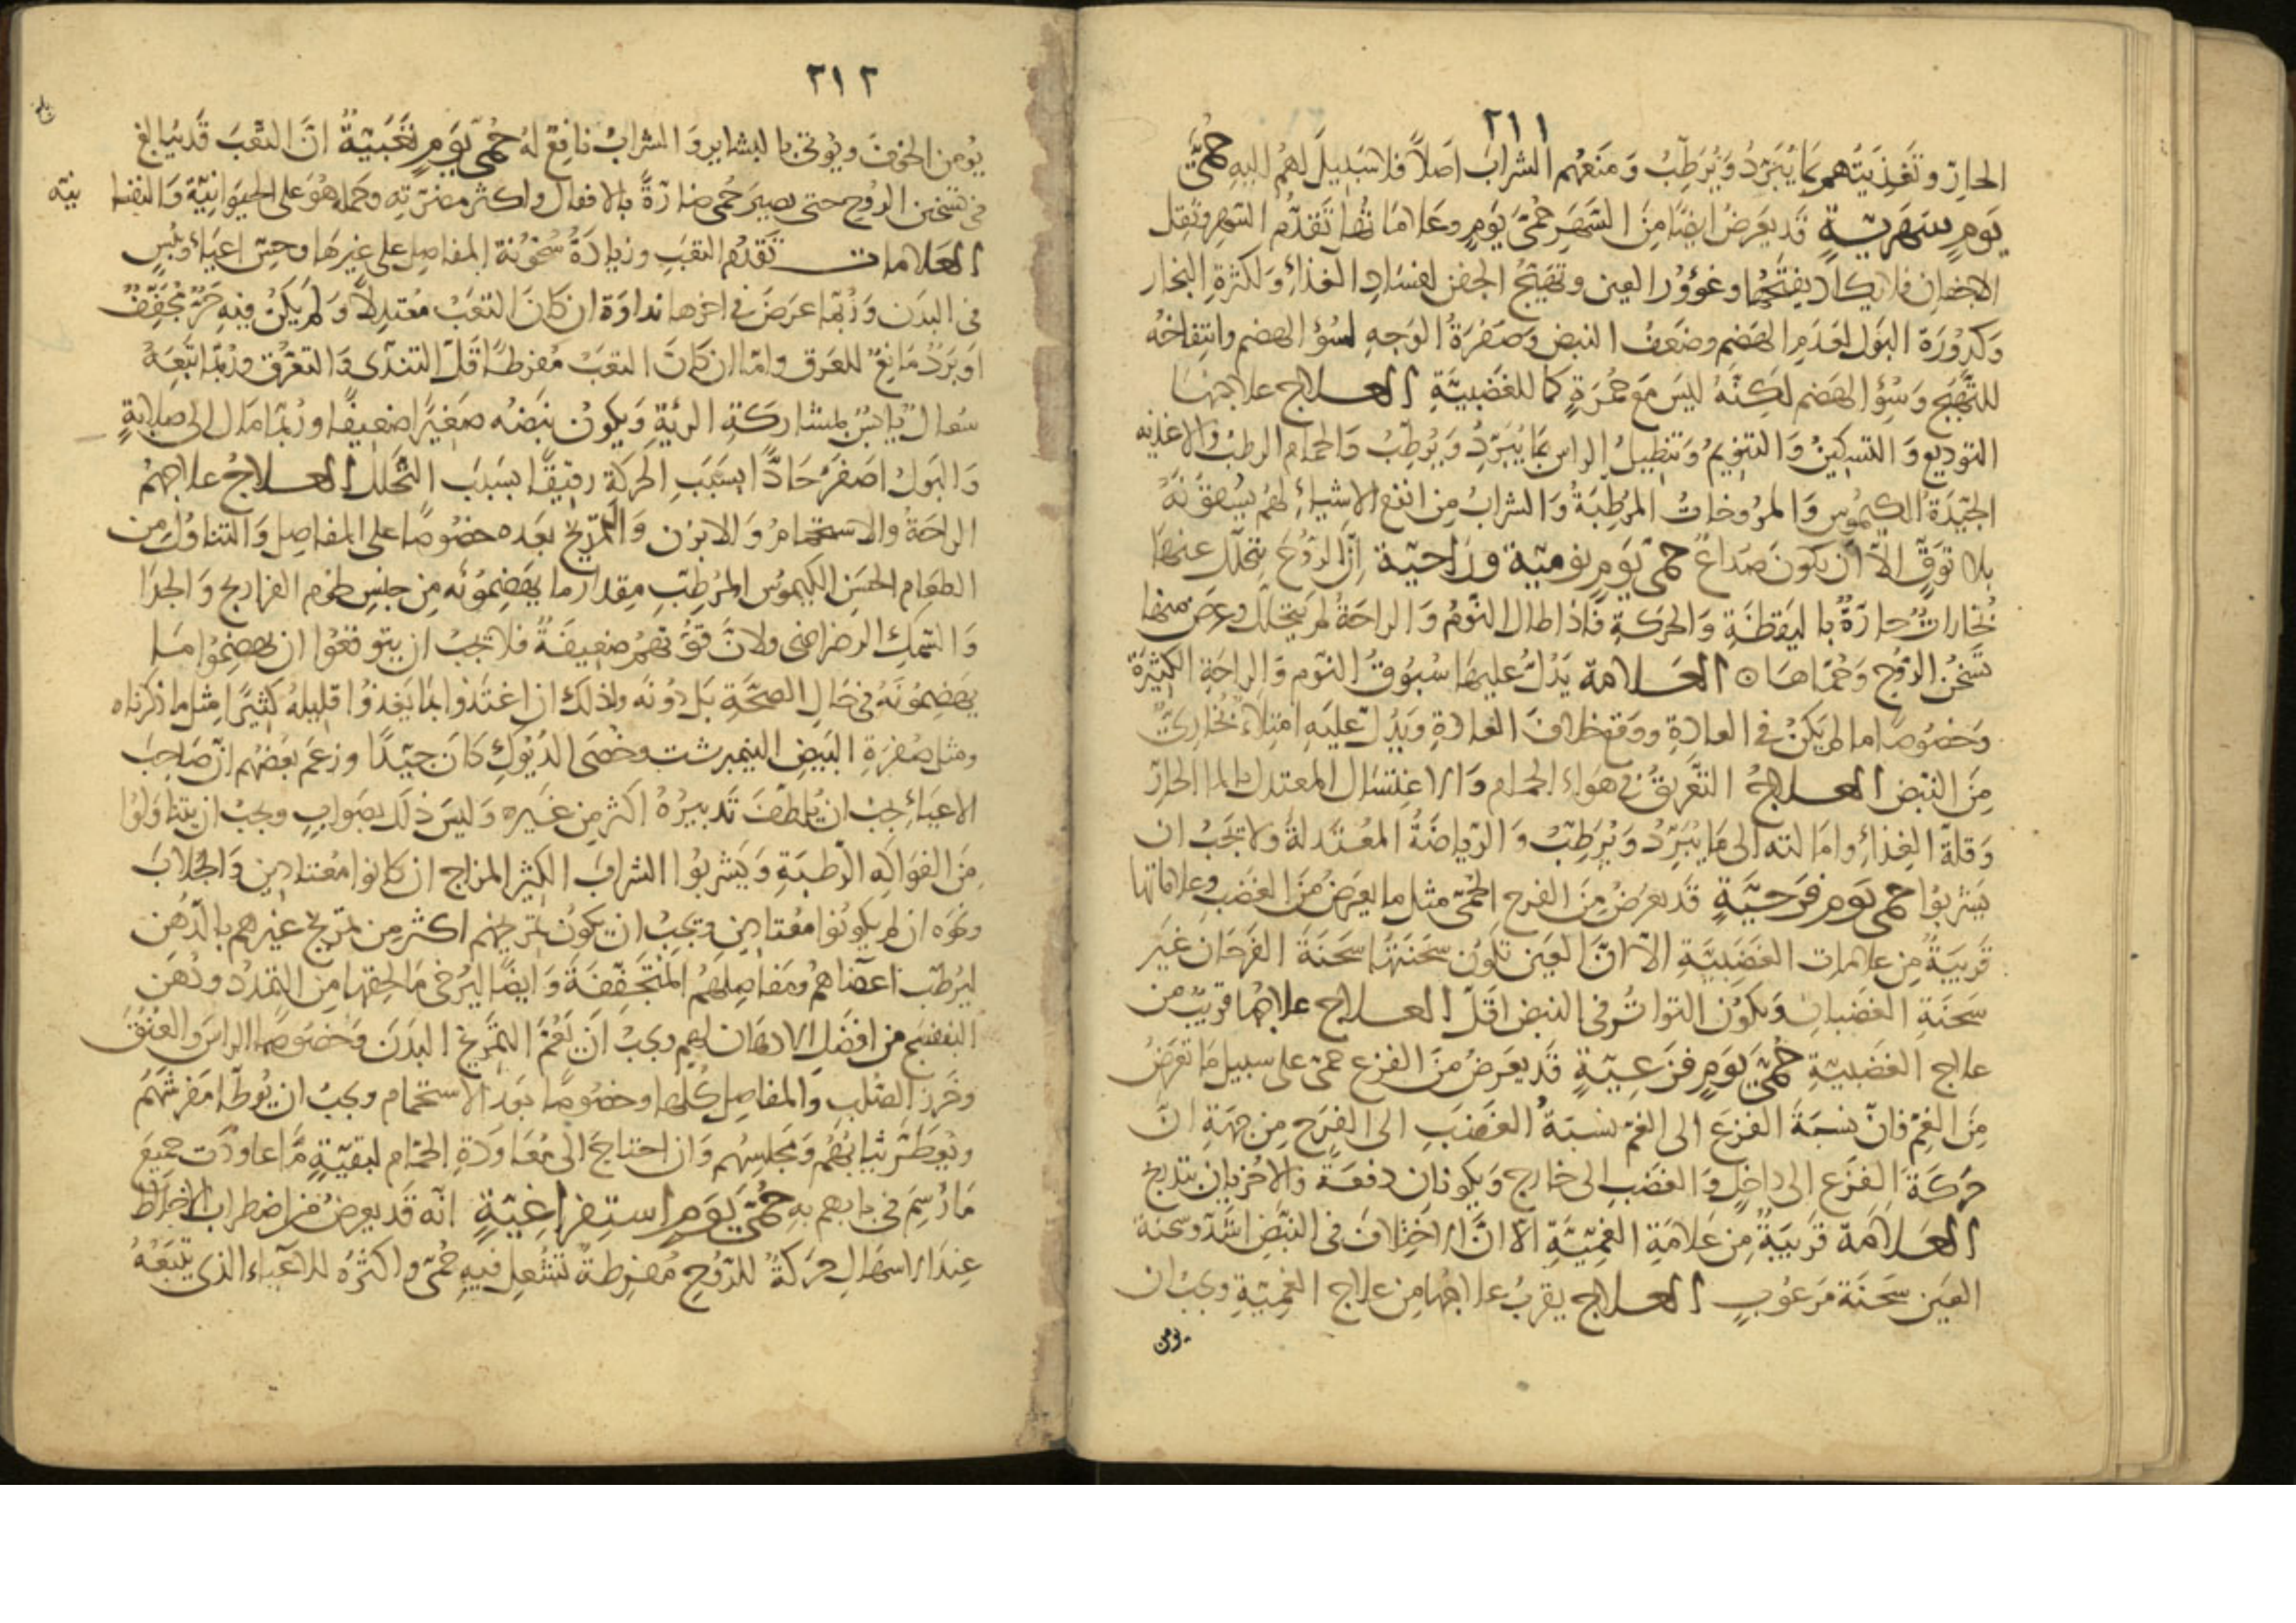 ٢١١
الحارّ وتغذيتهم بما يُبَرِّدُ وَيُرَطِّبُ وَمَنَعَهُم الشرابَ اَصلاً فلا سَبيلَ لهم اليه حُمَّى
يَومٍ سَهَرِيّةٍ قَد يَعَرضُ ايضًا مِنَ السَّهَرِ حُمَّى يَومٍ وعَلامَاتُها تَقَدُّمُ السَهَر وثقل
الاجفان فلا يكاد يفتحُها وغُؤُور العين وتَهَيُّجُ الجفن لفسَادِ الغذاءِ وَلكثرةِ البخار
وَكدُورَة البَول لعَدَمِ الهَضمِ وضَعفُ النبضِ وَصُفرَةُ الوَجهِ لسُوءِ الهضم وانتفاخهُ
للتَّهَيُّجِ وَسُوءِ الهَضم لكِنَّهُ ليسَ مَعَ حُمرَةٍ كما للغَضَبِيَّةِ العلاج علاجهُا
التوديع وَالتسكينُ وَالتنويمُ وَتنطيلُ الراس بما يُبَرِّدُ وَيُرَطِّبُ وَالحمام الرطبُ والاغذيه
الجيّدَةُ الكيمُوس وَالمَرُوخاتُ المُرَطِّبَةُ وَالشرابُ مِن انفع الاشياءِ لهُم يُسقونَهُ
بلا تَوَقٍّ الاّ اَن يكون صُداعٌ حُمّى يَومٍ نوميّة وراحيّة اِنَّ الرّوحَ يتحلّل عنها
بُخاراتٌ حارّةٌ باليَقظَةِ وَالحركةِ فاذا طال النّومُ وَالراحَةُ لم يتحلّل وعرَض منها
تَسَخُّن الرّوح وَحُمّاها ۞ العَلامة يَدُلُّ عليها سُبُوقُ النّوم وَالراحَةِ الكثيرَة
وَخصُوصًا ما لم يَكنْ في العادَةِ ووقع خلافَ العادةِ وَيَدُلّ عَلَيهِ امتلاءٌ بُخاريٌّ
مِنَ النبض العلاجُ التَّعَرّقُ في هَواءِ الحمام وَالاغتسَال المعتدل بالماء الحارّ
وَقلة الغِذاءِ وامَالته الى مَا يُبَرِّدُ وَيُرَطّبُ وَالرّياضَةُ المُعتَدلةُ ولا يَجبُ ان
يَشربُوا حمى يَومٍ فَرَحيَّةٍ قَد يعرُضُ مِنَ الفرح الحُمّى مثل ما يعرَضُ مِنَ الغضَب وعلاماتها
قَرِيبَةٌ مِن علامات الغَضَبيَّةِ الاّ انَّ العَين تكون سَحَنَتُها سَحَنَةَ الفَرَحَان غَيرَ
سَحَنَةِ الغَضبان وَيكونُ التواتُر في النبض اَقَلّ العلاج علاجُها قريبٌ من
علاج الغَضبيّةِ حُمَّى يَومٍ فَزَعيّةٍ قَد يعرَضُ مِنَ الفزع حمى على سبيل ما تعرَضُ
مِنَ الغمّ فانّ نسبَةَ الفزَعَ الى الغمّ نسبَةُ الغَضَبِ الى الفرَح مِن جهَةِ انّ
حَركَةَ الفزَع الى داخِلٍ وَالغضَبِ الى خارج وَيكونان دفعَةً والاخريان بتدريج
العَلامَة قَريبَةٌ مِن عَلامَةِ الغمّيَّةِ الاّ انَّ الاختلافَ في النبَّض اشدّ وسحنَة
العَين سَحَنَة مَرعُوبٍ العلاج يقربُ علاجُها من علاج الغمّيّةِ ويجبُ ان
يومن
٢١٢
يُومن الخوفَ ويُوتى بالبشاير وَالشرابُ نافِعٌ لهُ حُمّى يَومٍ تَعَبيّةٌ انّ التعَبَ قَد يُبالغ
في تسخين الروح حتى يصيرَ حُمى ضارّةً بالافعال واكثر مضرّته وحمله هُوَ على الحيوانيّة وَالنفسا نيّه
العَلامات تَقدُّم التعَب وزيادَةُ سُخونة المفاصِل على غيرها وحِسّ اعيَاءٍ ويُبسٍ
في البدَن وَرُبّما عرَضَ في اخرها نداوَة ان كانَ التعَبُ مُعتدِلاً وَلم يَكنْ فيهِ حَرٌّ مُجَفّفٌ
اَو بَردٌ مَانعٌ للعَرَق وامّا ان كانَ التعَبُ مُفرطًا قلّ التندّى وَالتعَرّق ورُبّما اتّبَعَهُ
سُعالٌ يابسٌ لمشاركَةِ الرئةِ وَيكونُ نبَضُه صَغيرًا ضعيفًا ورُبّما مَال الى صَلابةٍ
وَالبَولُ اصَفرُ حَادًّا بسَبَب الحركَةِ رقيقًا بسَبَب التَّحلّل العلاجُ علاجهُم
الراحَةُ والاستحمامُ وَالابزن وَالتمريخُ بعدَه خصُوصًا على المفاصِل وَالتناوُل من
الطعام الحسَن الكيمُوس المُرَطّب مِقدار ما يَهضِمُونَه مِن جنس لحُوم الفراريج وَالجدا
وَالسّمَكِ الرضراضى ولانّ قُوّتهُم ضعيفَةٌ فلا يجبُ ان يتوقعُوا ان يهضِمُوا مَا
يَهضِمُونَهُ في حَالِ الصحّةِ بَل دُونَه ولذلك ان اغتَذوا بما يَغذُوا قليلهُ كثيرًا مِثل ما ذكرناه
ومثل صُفرَةِ البَيض النيمبرشت وخُصَى الدُيُوكِ كانَ جيّدًا وزعمَ بعَضُهم انّ صَاحِبَ
الاعيَاءِ يجبُ ان يُلطّف تَدبيرُهُ اكثر مِن غيَره وَليسَ ذلكَ بصَوابٍ ويجبُ ان يتناوَلُوا
مِنَ الفوَاكِه الرّطبَةِ وَيَشربُوا الشرابَ الكثير المزاج ان كانوا مُعتادين وَالجُلابَ
ونحوه ان لم يكونُوا مُعتادين ويجبُ ان يكونُ تمريخهم اكثر مِن تمريخ غيرهم بالدّهُن
ليُرطّب اعضاهُم ومَفاصِلهُم المُتَجَفّفَةَ وَايضًا ليُرخى مَا لحِقها مِن التمَدّد ودُهَن
البنفسج من افضَل الادهان لهم ويجبُ اَن يَعُمّ التمَريخ البَدَن وخصُوصًا الراسَ وَالعُنقَ
وخرَز الصُلب وَالمفاصِل كُلّها وخصُوصًا بَعد الاستحمام ويجبُ ان يُوطّا مَفرشهُم
ويُعطّر ثيابهُم وَمجلِسهُم وَان احتاجَ الى مُعَاوَدَةِ الحمّام لبقيّةٍ مّا عاودَت جميعَ
مَا رُسِمَ في بابهم به حُمَّى يَومٍ استِفراغيّةٍ انّه قَد يعرضُ مِن اضطراب الاخلاط
عِندَ الاسهَال حركةٌ للرّوُحِ مُفرطةٌ تشتعل فيه حُمّى واكثرُهُ للاعيَاء الذى يتبَعُهُ